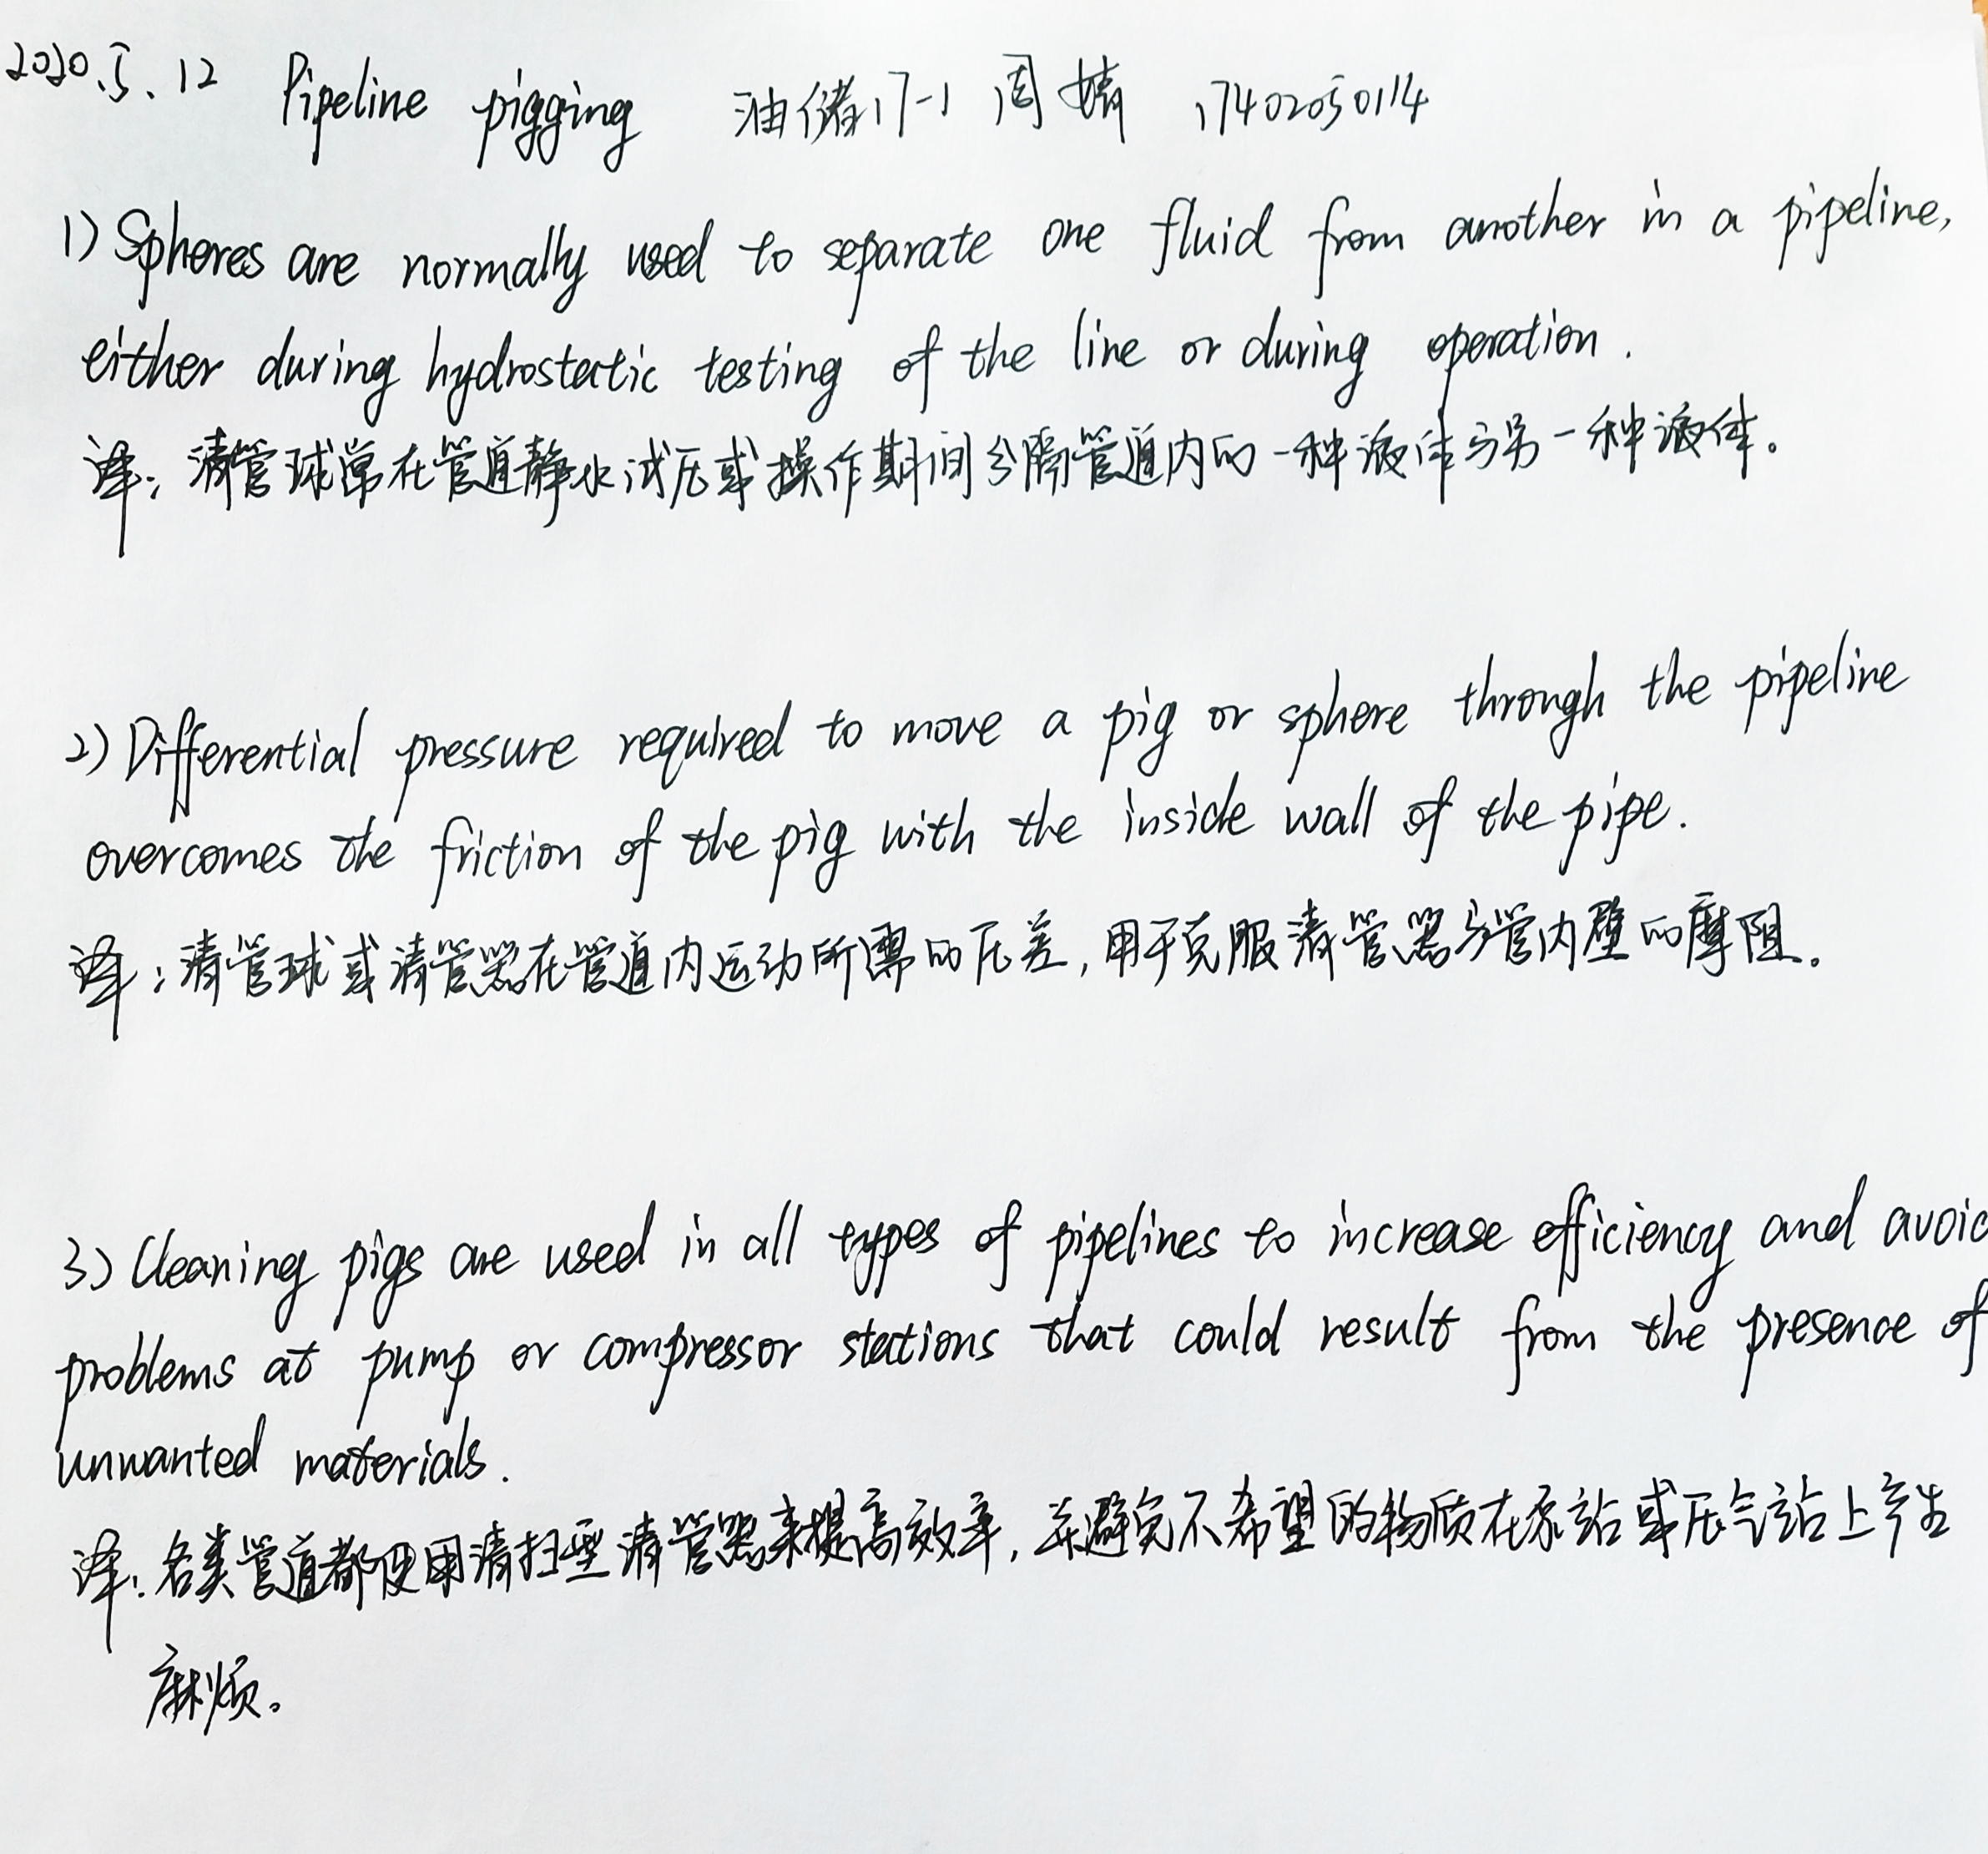 2020.5.12 Pipeline pigging 油储17-1 周婧 17402050114
1) Spheres are normally used to separate one fluid from another in a pipeline,
either during hydrostatic testing of the line or during operation.
译：清管球常在管道静水试压或操作期间分隔管道内的一种液体与另一种液体。
2) Differential pressure required to move a pig or sphere through the pipeline
overcomes the friction of the pig with the inside wall of the pipe.
译：清管球或清管器在管道内运动所需的压差，用于克服清管器与管内壁的摩阻。
3) Cleaning pigs are used in all types of pipelines to increase efficiency and avoid
problems at pump or compressor stations that could result from the presence of
unwanted materials.
译：各类管道都使用清扫型清管器来提高效率，并避免不希望的物质在泵站或压气站上产生
麻烦。